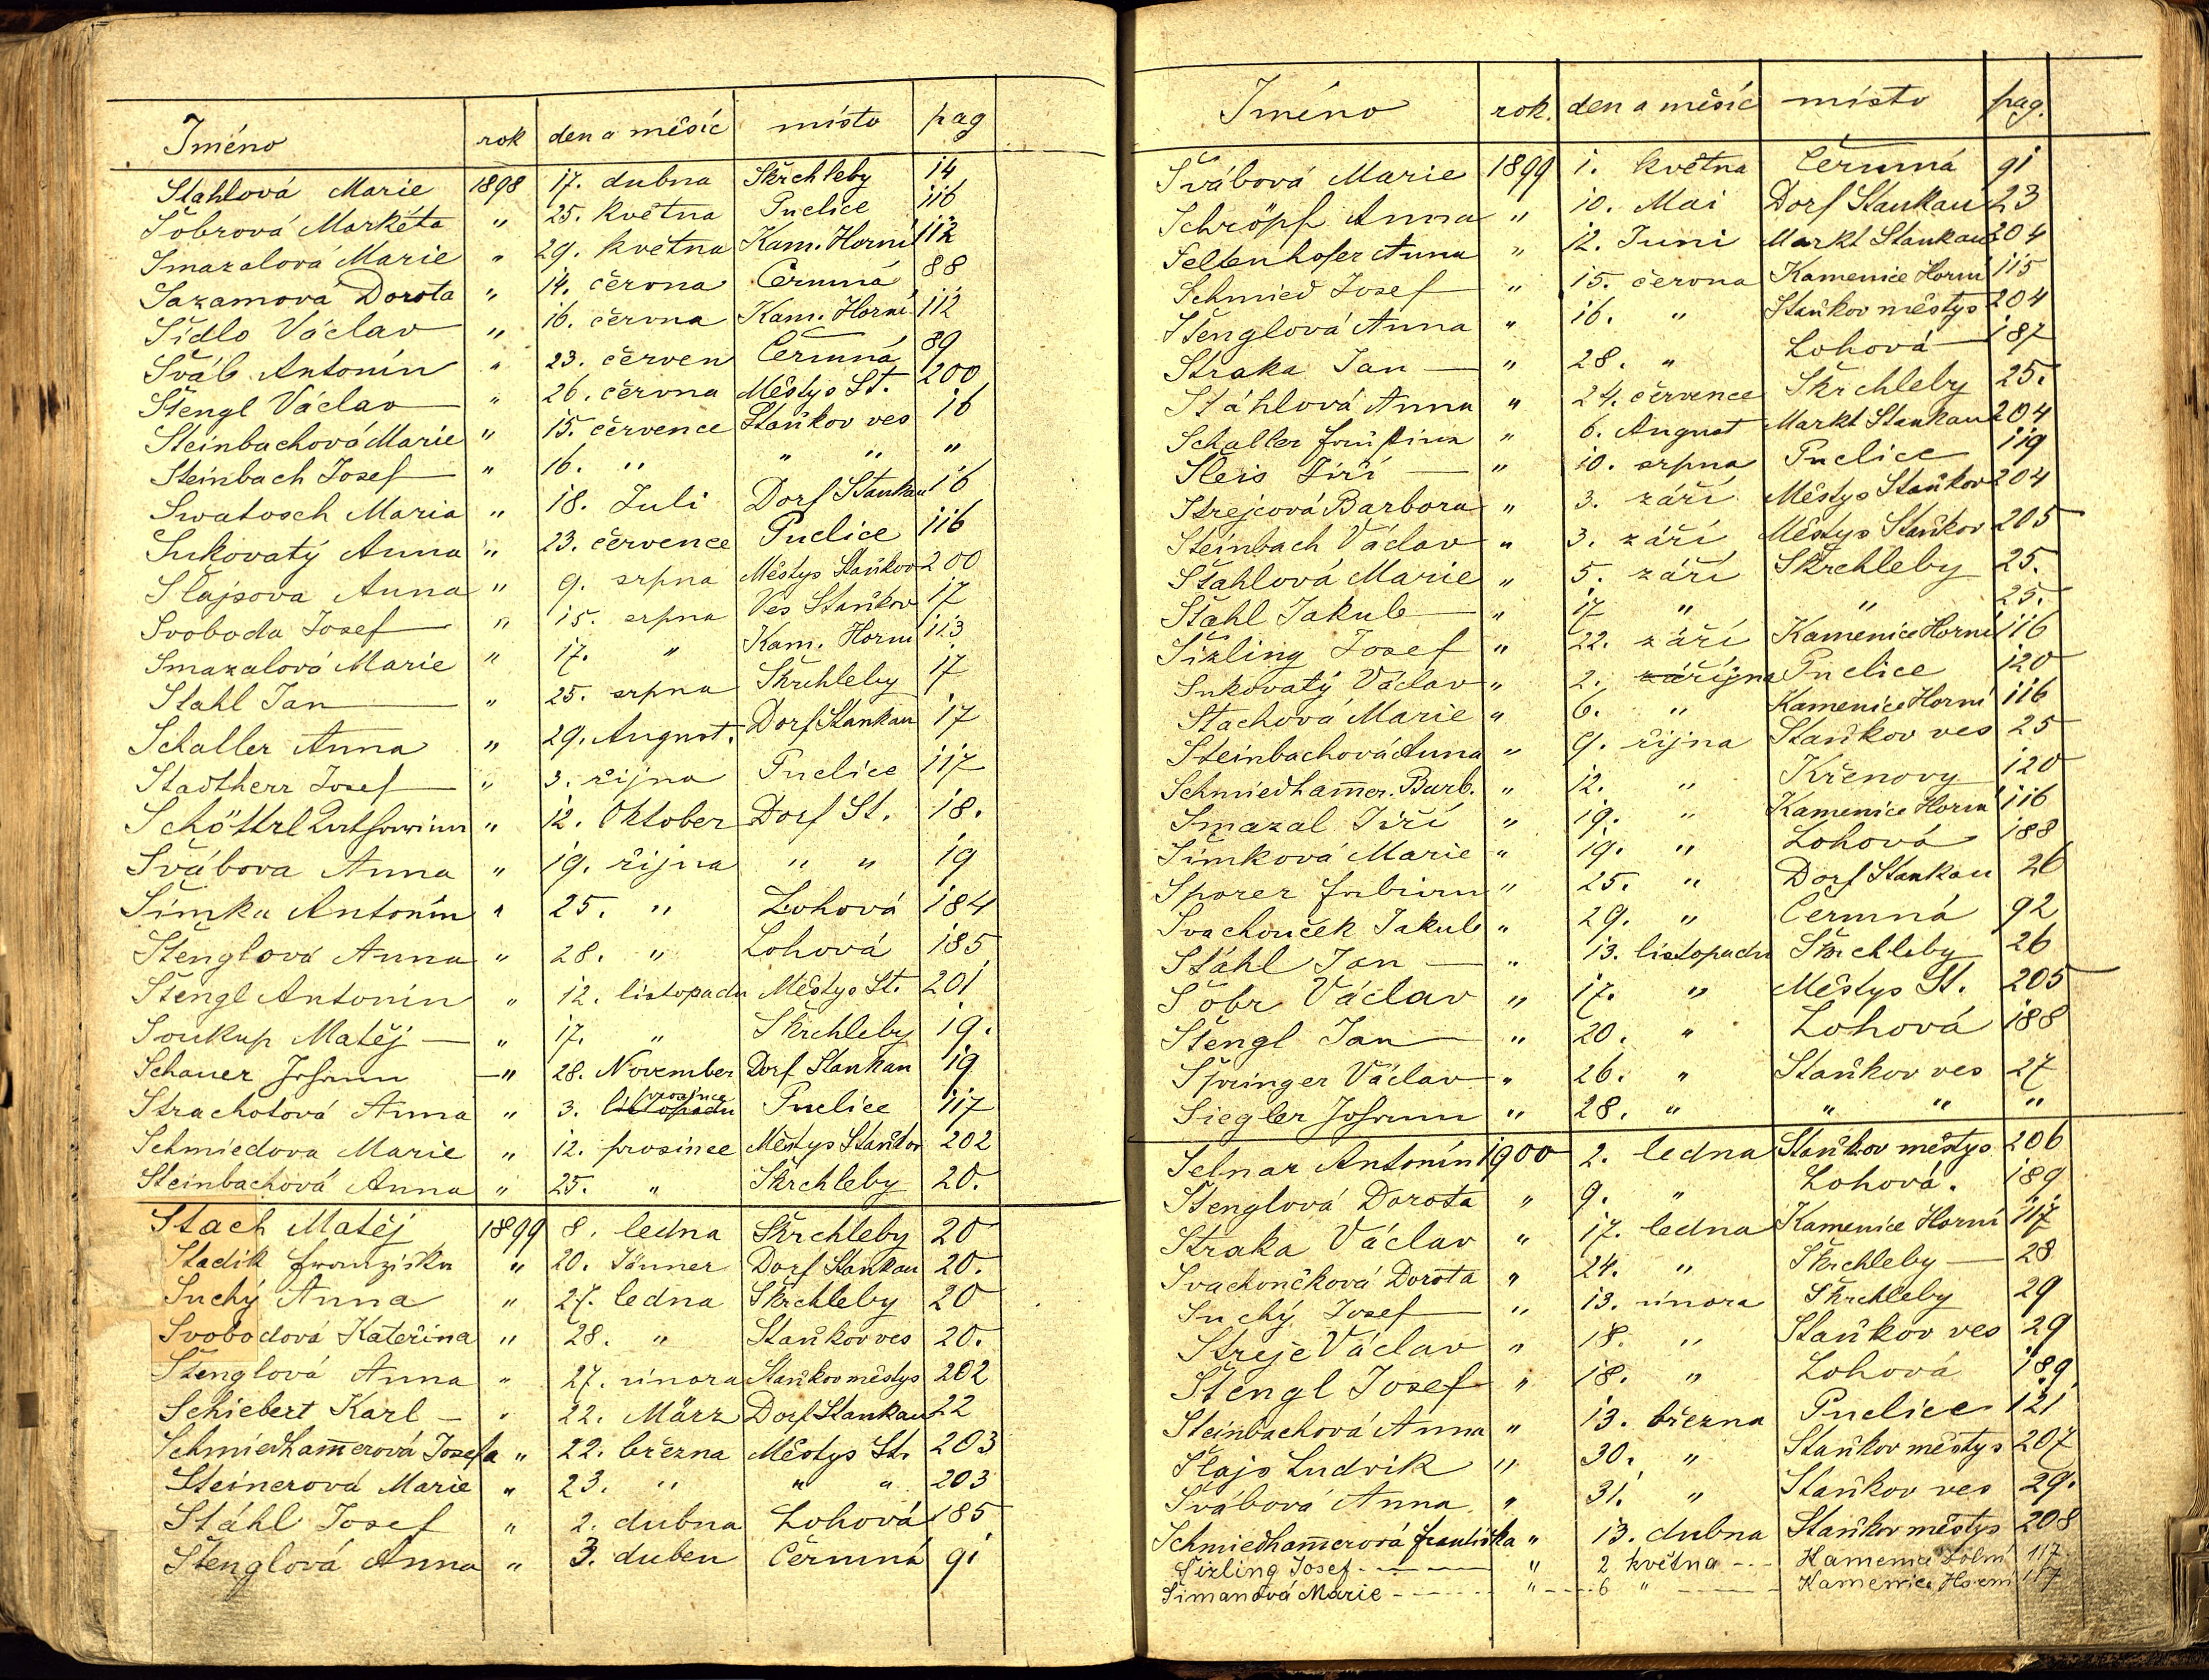 Jméno rok den a měsíc místo pag
Stahlová Marie 1898 17. dubna Škrchleby 14
Šobrová Markéta " 25. května Puclice 116
Smazalová Marie " 29. května Kam. Horní 112
Sazamová Dorota " 14. června Čermná 88
Šídlo Václav " 16. června Kam. Horní 112
Šváb Antonín " 23. červen Čermná 89
Štengl Václav " 26. června Městys St. 200
Steinbachová Marie " 15. července Staňkov ves 16
Steinbach Josef " 16. " " " "
Swatosch Maria " 18. Juli Dorf Stankau 16
Sukovatý Anna " 23. července Puclice 116
Šlajsova Anna " 9. srpna Městys Staňkov 200
Svoboda Josef " 15. srpna Ves Staňkov 17
Smazalová Marie " 17. " Kam. Horní 113
Stahl Jan " 25. srpna Škrchleby 17
Schaller Anna " 29. August. Dorf Stankau 17
Stadtherr Josef " 3. října Puclice 117
Schöttrl Katharina " 12. Oktober Dorf St. 18.
Švábova Anna " 19. října " " 19
Šimku Antonín " 25. " Lohová 184
Štenglová Anna " 28. " Lohová 185
Štengl Antonín " 12. listopadu Městys St. 201
Soukup Matěj " 17. " Škrchleby 19.
Schauer Johann " 28. November Dorf Stankau 19
Strachotová Anna " 3. listopadu prosince Puclice 117
Schmiedova Marie " 12. prosince Městys Staňkov 202
Steinbachová Anna " 25. " Škrchleby 20.
Stach Matěj 1899 8. ledna Škrchleby 20
Stadik Franziska " 20. Jänner Dorf Stankau 20.
Suchý Anna " 27. ledna Škrchleby 20
Svobodová Kateřina " 28. " Staňkov ves 20.
Štenglová Anna " 27. února Staňkov městys 202
Schiebert Karl " 22. März Dorf Stankau 22
Schmiedham̅erová Josefa " 22. března Městys St. 203
Steinerová Marie " 23. " " " 203
Stáhl Josef " 2. dubna Lohová 185
Štenglová Anna " 3. duben Čermná 91
Jméno rok. den a měsíc místo pag.
Švábová Marie 1899 1. května Čermná 91
Schröpf Anna " 10. Mai Dorf Stankau 23
Seltenhofer Anna " 12. Juni Markt Stankau 204
Schmied Josef " 15. června Kamenice Horní 115
Štenglová Anna " 16. " Staňkov městys 204
Straka Jan " 28. " Lohová 187
Stáhlová Anna " 24. července Škrchleby 25.
Schaller Justina " 6. August Markt Stankau 204
Šleis Jiří " 10. srpna Puclice 119
Strejcová Barbora " 3. září Městys Staňkov 204
Steinbach Václav " 3. září Městys Staňkov 205
Štahlová Marie " 5. září Škrchleby 25.
Štahl Jakub " 17 " " 25.
Šizling Josef " 22. září Kamenice Horní 116
Sukovatý Václav " 2. října Puclice 120
Stachová Marie " 6. " Kamenice Horní 116
Steinbachová Anna " 9. října Staňkov ves 25
Schmiedham̅er. Barb. " 12. " Křenovy 120
Smazal Jiří " 19. " Kamenice Horní 116
Šimková Marie " 19. " Lohová 188
Sporer Fabian " 25. " Dorf Stankau 26
Svachouček Jakub " 29. " Čermná 92
Stáhl Jan " 13. listopadu Škrchleby 26
Šobr Václav " 17. " Městys St. 205
Štengl Jan " 20. " Lohová 188
Springer Václav " 26. " Staňkov ves 27
Siegler Johann " 28. " " " "
Selnar Antonín 1900 2. ledna Staňkov městys 206
Štenglová Dorota " 9. " Lohová. 189
Straka Václav " 17. ledna Kamenice Horní 117
Svachončková Dorota " 24. " Škrchleby 28
Suchý Josef " 13. února Škrchleby 29
Strejc Václav " 18. " Staňkov ves 29
Štengl Josef " 18. " Lohová 189
Steinbachová Anna " 13. března Puclice 121
Šlajs Ludvik " 30. " Staňkov městys 207
Švábová Anna " 31. " Staňkov ves 29.
Schmiedham̅erová Františka " 13. dubna Staňkov městys 208
Šizling Josef " 2 května Kamenice Dolní 117
Šimandová Marie " 6 " Kamenice Horní 117